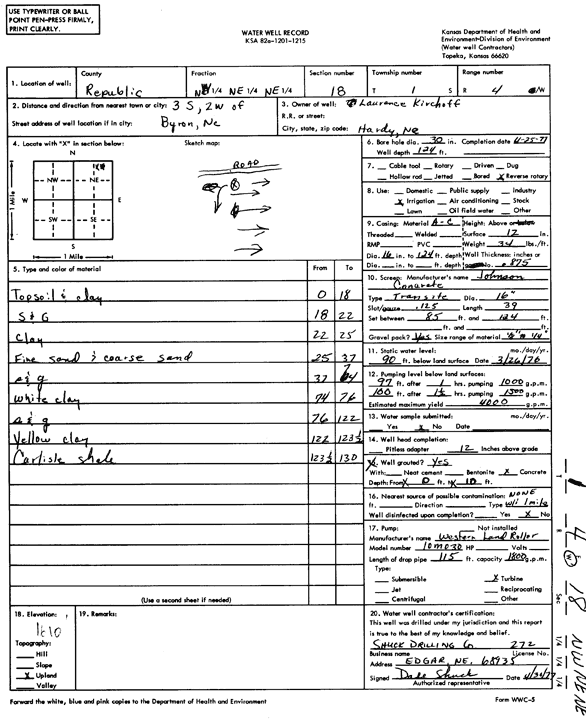 USE TYPEWRITER OR BALL
POINT PEN-PRESS FIRMLY,
PRINT CLEARLY.
WATER WELL RECORD
KSA 82a-1201-1215
Kansas Department of Health and
Environment-Division of Environment
(Water well Contractors)
Topeka, Kansas 66620
1. Location of well: County Republic Fraction NW 1/4 NE 1/4 NE 1/4 Section number 18 Township number T 1 S Range number R 4 W
2. Distance and direction from nearest town or city: 3 S, 2 W of
Street address of well location if in city: Byron, Ne
3. Owner of well: Laurence Kirchoff
R.R. or street:
City, state, zip code: Hardy, Ne
4. Locate with "X" in section below: Sketch map:
N
NW NE
W E
SW SE
S
1 Mile
1 Mile
ROAD
6. Bore hole dia. 30 in. Completion date 4-25-77
Well depth 124 ft.
7. Cable tool Rotary Driven Dug
Hollow rod Jetted Bored X Reverse rotary
8. Use: Domestic Public supply Industry
X Irrigation Air conditioning Stock
Lawn Oil field water Other
9. Casing: Material A-C Height: Above or below
Threaded Welded Surface 12 in.
RMP PVC Weight 34 lbs./ft.
Dia. 16 in. to 124 ft. depth Wall Thickness: inches or
Dia. in. to ft. depth No. .875
5. Type and color of material From To
Topsoil & clay 0 18
S & G 18 22
Clay 22 25
Fine sand & coarse sand 25 37
s & g 37 74
White clay 74 76
s & g 76 122
Yellow clay 122 123½
Carlisle shale 123½ 130
(Use a second sheet if needed)
10. Screen: Manufacturer's name Johnson
Concrete
Type Transite Dia. 16"
Slot/gauze .125 Length 39
Set between 85 ft. and 124 ft.
ft. and ft.
Gravel pack? Yes Size range of material
11. Static water level: mo./day/yr.
90 ft. below land surface Date 3/26/76
12. Pumping level below land surfaces:
97 ft. after 1 hrs. pumping 1000 g.p.m.
100 ft. after 1½ hrs. pumping 1500 g.p.m.
Estimated maximum yield 4000 g.p.m.
13. Water sample submitted: mo./day/yr.
Yes X No Date
14. Well head completion:
Pitless adapter 12 Inches above grade
15. Well grouted? yes
With: Neat cement Bentonite X Concrete
Depth: From 0 ft. to 10 ft.
16. Nearest source of possible contamination: NONE
ft. Direction Type w/i 1 mile
Well disinfected upon completion? Yes X No
17. Pump: Not installed
Manufacturer's name Western Land Roller
Model number 10M030 HP Volts
Length of drop pipe 115 ft. capacity 1800 g.p.m.
Type:
Submersible X Turbine
Jet Reciprocating
Centrifugal Other
18. Elevation:
1610
Topography:
Hill
Slope
X Upland
Valley
19. Remarks:
20. Water well contractor's certification:
This well was drilled under my jurisdiction and this report
is true to the best of my knowledge and belief.
SHUCK DRILLING Co. 272
Business name License No.
Address EDGAR, NE. 68935
Signed Dale Shuck Date 4/30/77
Authorized representative
Forward the white, blue and pink copies to the Department of Health and Environment
Form WWC-5
T 1
R 4 W
Sec 18
1/4 1/4 1/4 NW NE NE